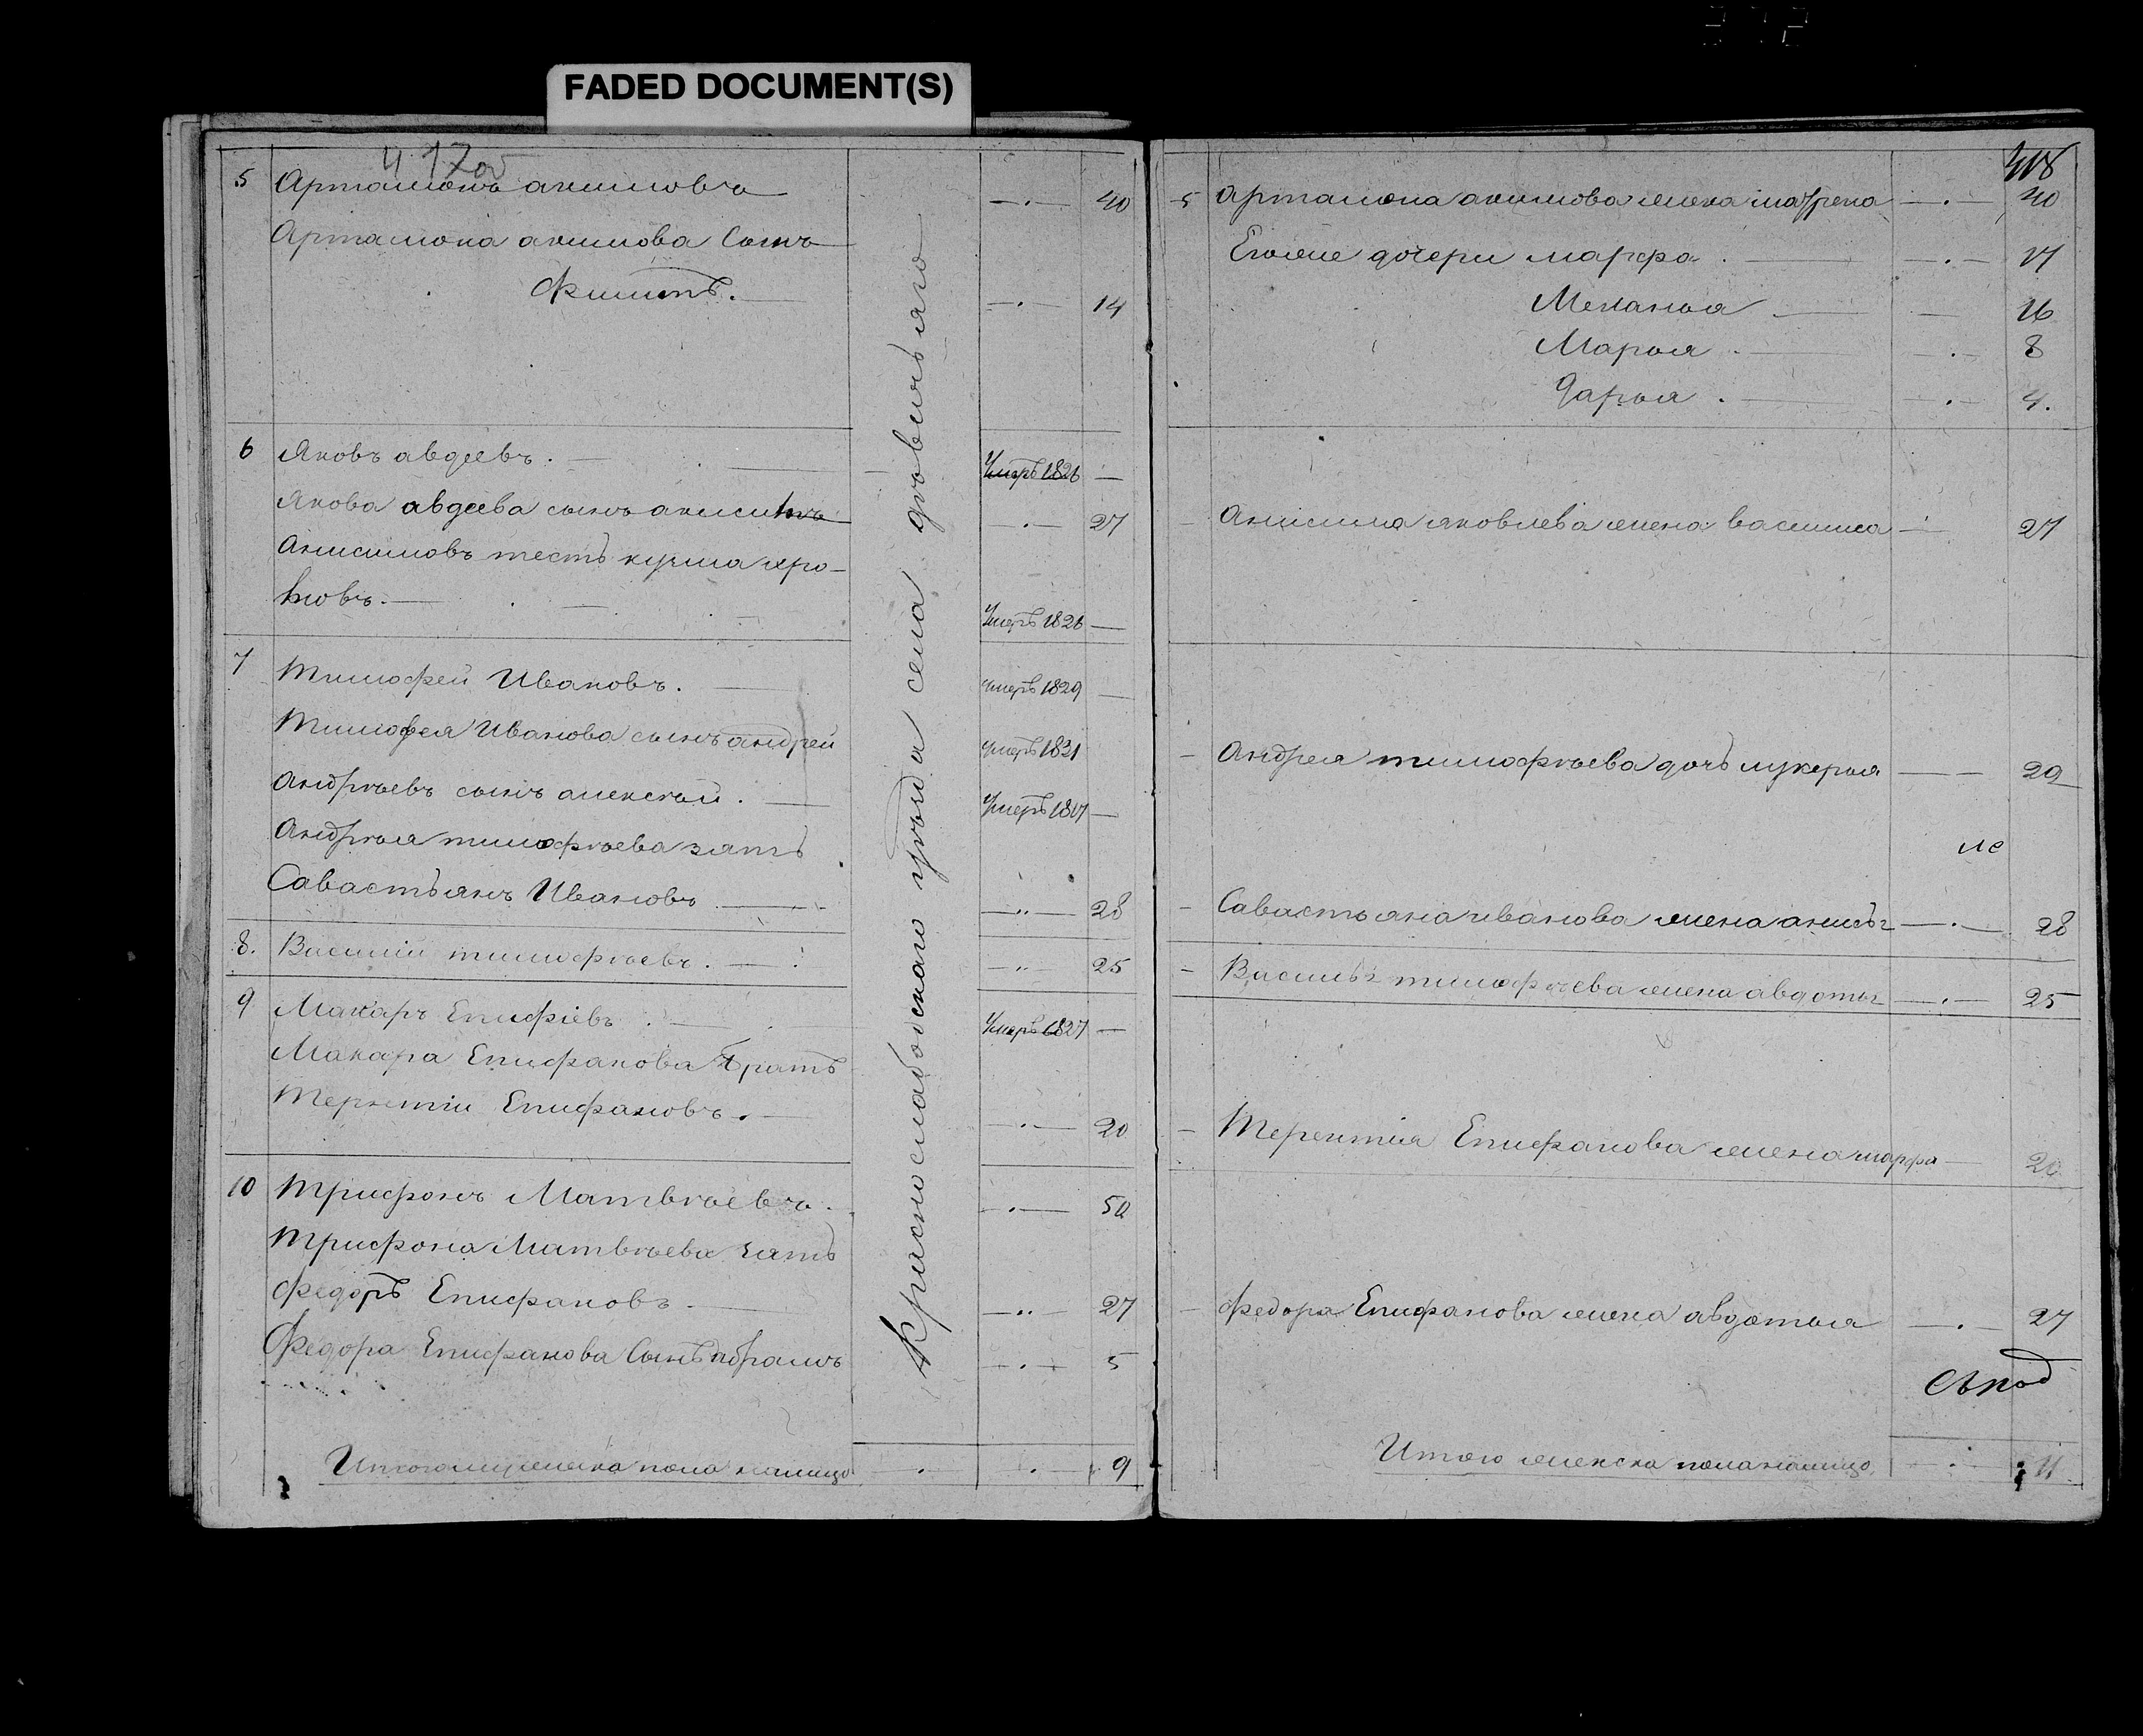 FADED DOCUMENT(S)
5 Артамонъ акимовъ — 40
Артамона акимова Сынъ
Филипъ. — 14
6 Яковъ авдеевъ. Умеръ 1826 —
Якова авдеева сынъ анисимъ — 27
Анисимовъ тесть
Умеръ 1826 —
7 Тимофей Ивановъ. умеръ 1829 —
Тимофея Иванова сынъ андрей умеръ 1831
Андрѣевъ сынъ алексѣй. Умеръ 1817 —
Андрѣя тимофѣева зять
Савастьянъ Ивановъ — 28
8. Василій тимофѣевъ. — 25
9 Макаръ Епифіевъ. Умеръ 1827 —
Макара Епифанова братъ
Терентій Епифановъ. — 20
10 Трифонъ Матвѣевъ. — 50
Трифона Матвѣева зять
Федоръ Епифановъ. — 27
Федора Епифанова Сынъ абрамъ — 5
Итого мужеска пола налицо 9
Краснослабодскаго уѣзда села
5 Артамона акимова жена матрена — 40
Еголие дочери марфа. — 17
Меланья — 16
Марья. — 8
Дарья. — 4.
Анисима яковлева жена василиса — 27
Андрея тимофѣева дочь лукерья — 29
Савастьяна иванова жена — 28
Василья тимофѣева жена авдотья — 25
Терентія Епифанова жена марфа — 20
Федора Епифанова жена авдотья — 27
Итого женска пола налицо 11